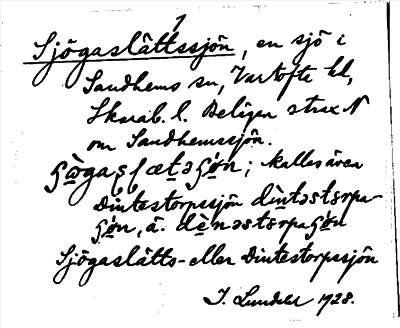 1
Sjögaslättssjön, en sjö i
Sandhems sn, Vartofta hd,
Skarab. l. Belägen strax N
om Sandhemssjön.
kallas även
Dintestorpssjön
Sjögaslätts- eller Dintestorpssjön
J. Lundahl 1928.